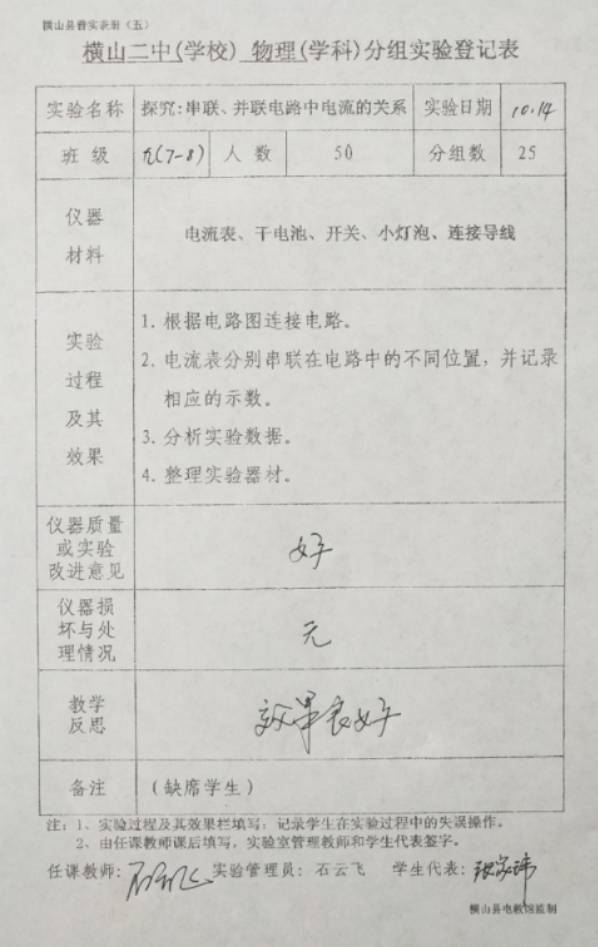 横山县普实表册（五）
横山二中(学校) 物理(学科)分组实验登记表
实验名称 探究:串联、并联电路中电流的关系 实验日期 10.14
班级 九(7-8) 人数 50 分组数 25
仪器
材料
电流表、干电池、开关、小灯泡、连接导线
实验
过程
及其
效果
1. 根据电路图连接电路。
2. 电流表分别串联在电路中的不同位置，并记录
相应的示数。
3. 分析实验数据。
4. 整理实验器材。
仪器质量
或实验
改进意见
好
仪器损
坏与处
理情况
无
教学
反思
效果良好
备注 （缺席学生）
注：1、实验过程及其效果栏填写：记录学生在实验过程中的失误操作。
2、由任课教师课后填写，实验室管理教师和学生代表签字。
任课教师：石云飞 实验管理员：石云飞 学生代表：
横山县电教馆监制